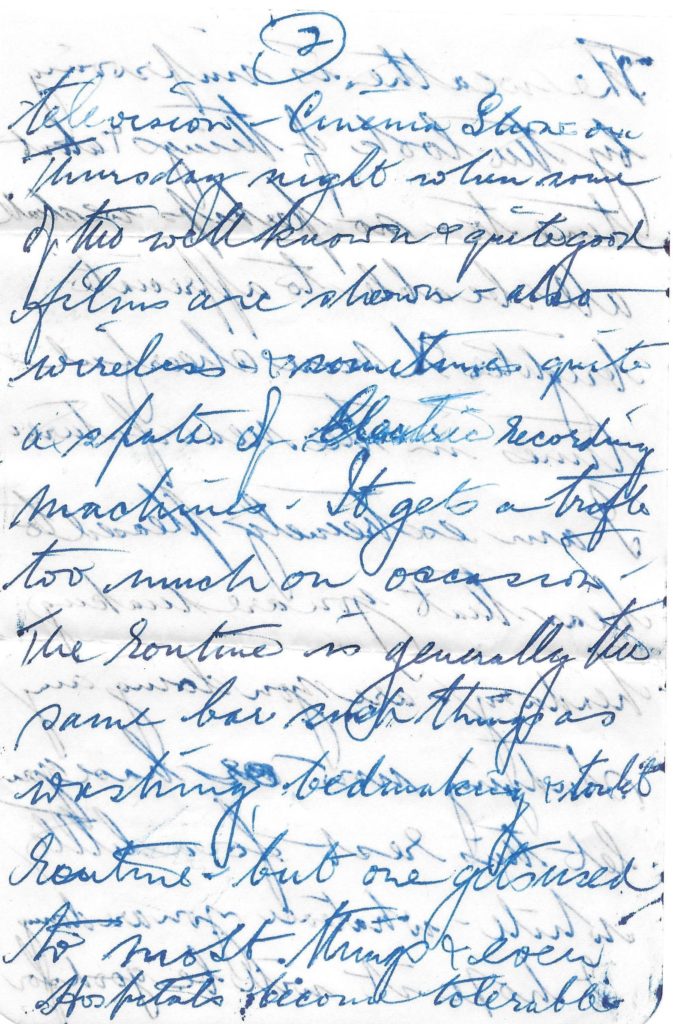 2
television - Cinema Show on
Thursday night when some
of the well known & quite good
films are shown - also
wireless & sometimes quite
a spate of Electric recording
machines. It gets a trifle
too much on occassion!
The routine is generally the
same bar such things as
washing, bedmaking & toilet
routine - but one gets used
to most things & even
Hospitals become tolerable